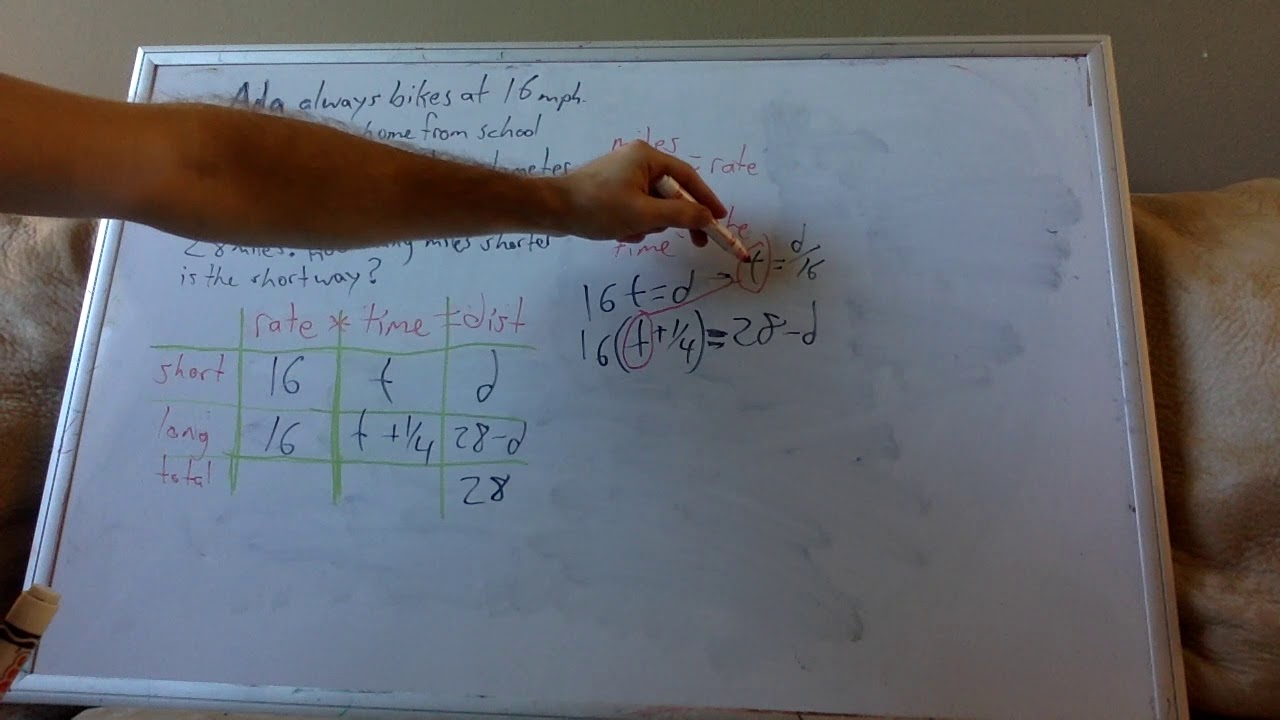 Ada always bikes at 16 mph.
home from school
28 miles. How many miles shorter
is the short way?
miles
= rate
time
t = d/16
16 t = d
16(t + 1/4) = 28 - d
rate * time = dist
short 16 t d
long 16 t + 1/4 28 - d
total 28